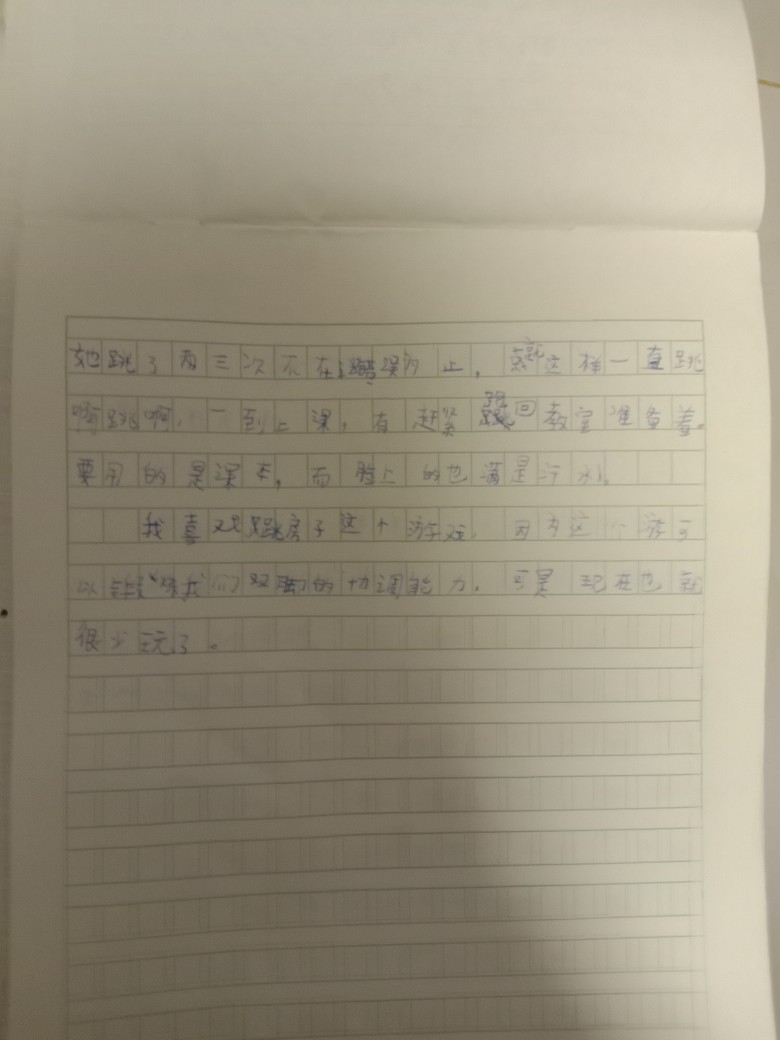 她跳了两三次不在错误为止，就这样一直跳
啊跳啊，一到上课，有赶紧跑回教室准备着。
要用的是课本，而脸上的也满是汗水。
我喜欢跳房子这个游戏，因为这个游可
以锻炼我们双脚的协调能力。可是现在也就
很少玩了。